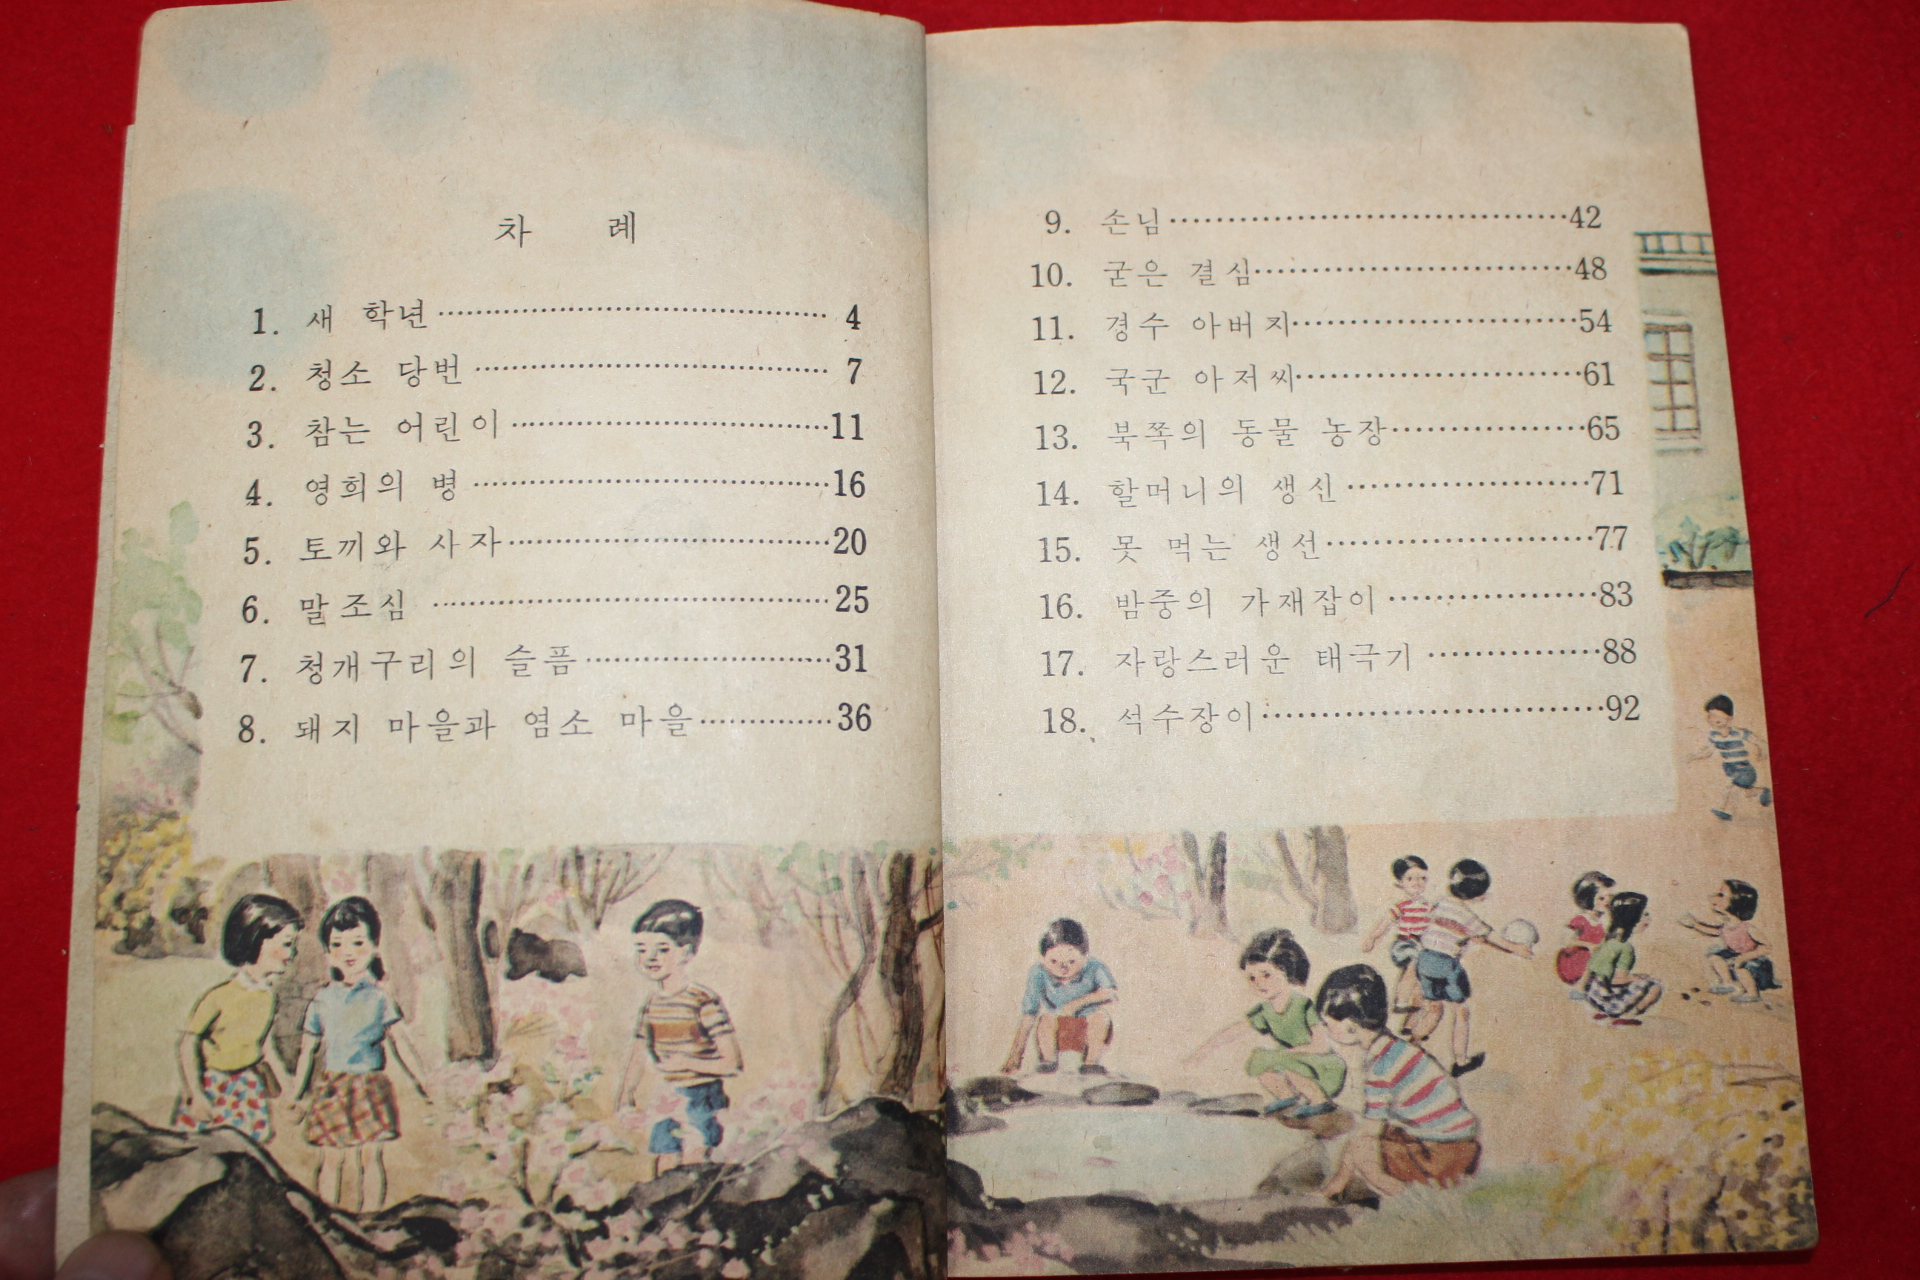 차 례
1. 새 학년 ········ 4
2. 청소 당번 ········ 7
3. 참는 어린이 ········ 11
4. 영희의 병 ········ 16
5. 토끼와 사자 ········ 20
6. 말조심 ········ 25
7. 청개구리의 슬픔 ········ 31
8. 돼지 마을과 염소 마을 ········ 36
9. 손님 ········ 42
10. 굳은 결심 ········ 48
11. 경수 아버지 ········ 54
12. 국군 아저씨 ········ 61
13. 북쪽의 동물 농장 ········ 65
14. 할머니의 생신 ········ 71
15. 못 먹는 생선 ········ 77
16. 밤중의 가재잡이 ········ 83
17. 자랑스러운 태극기 ········ 88
18. 석수장이 ········ 92